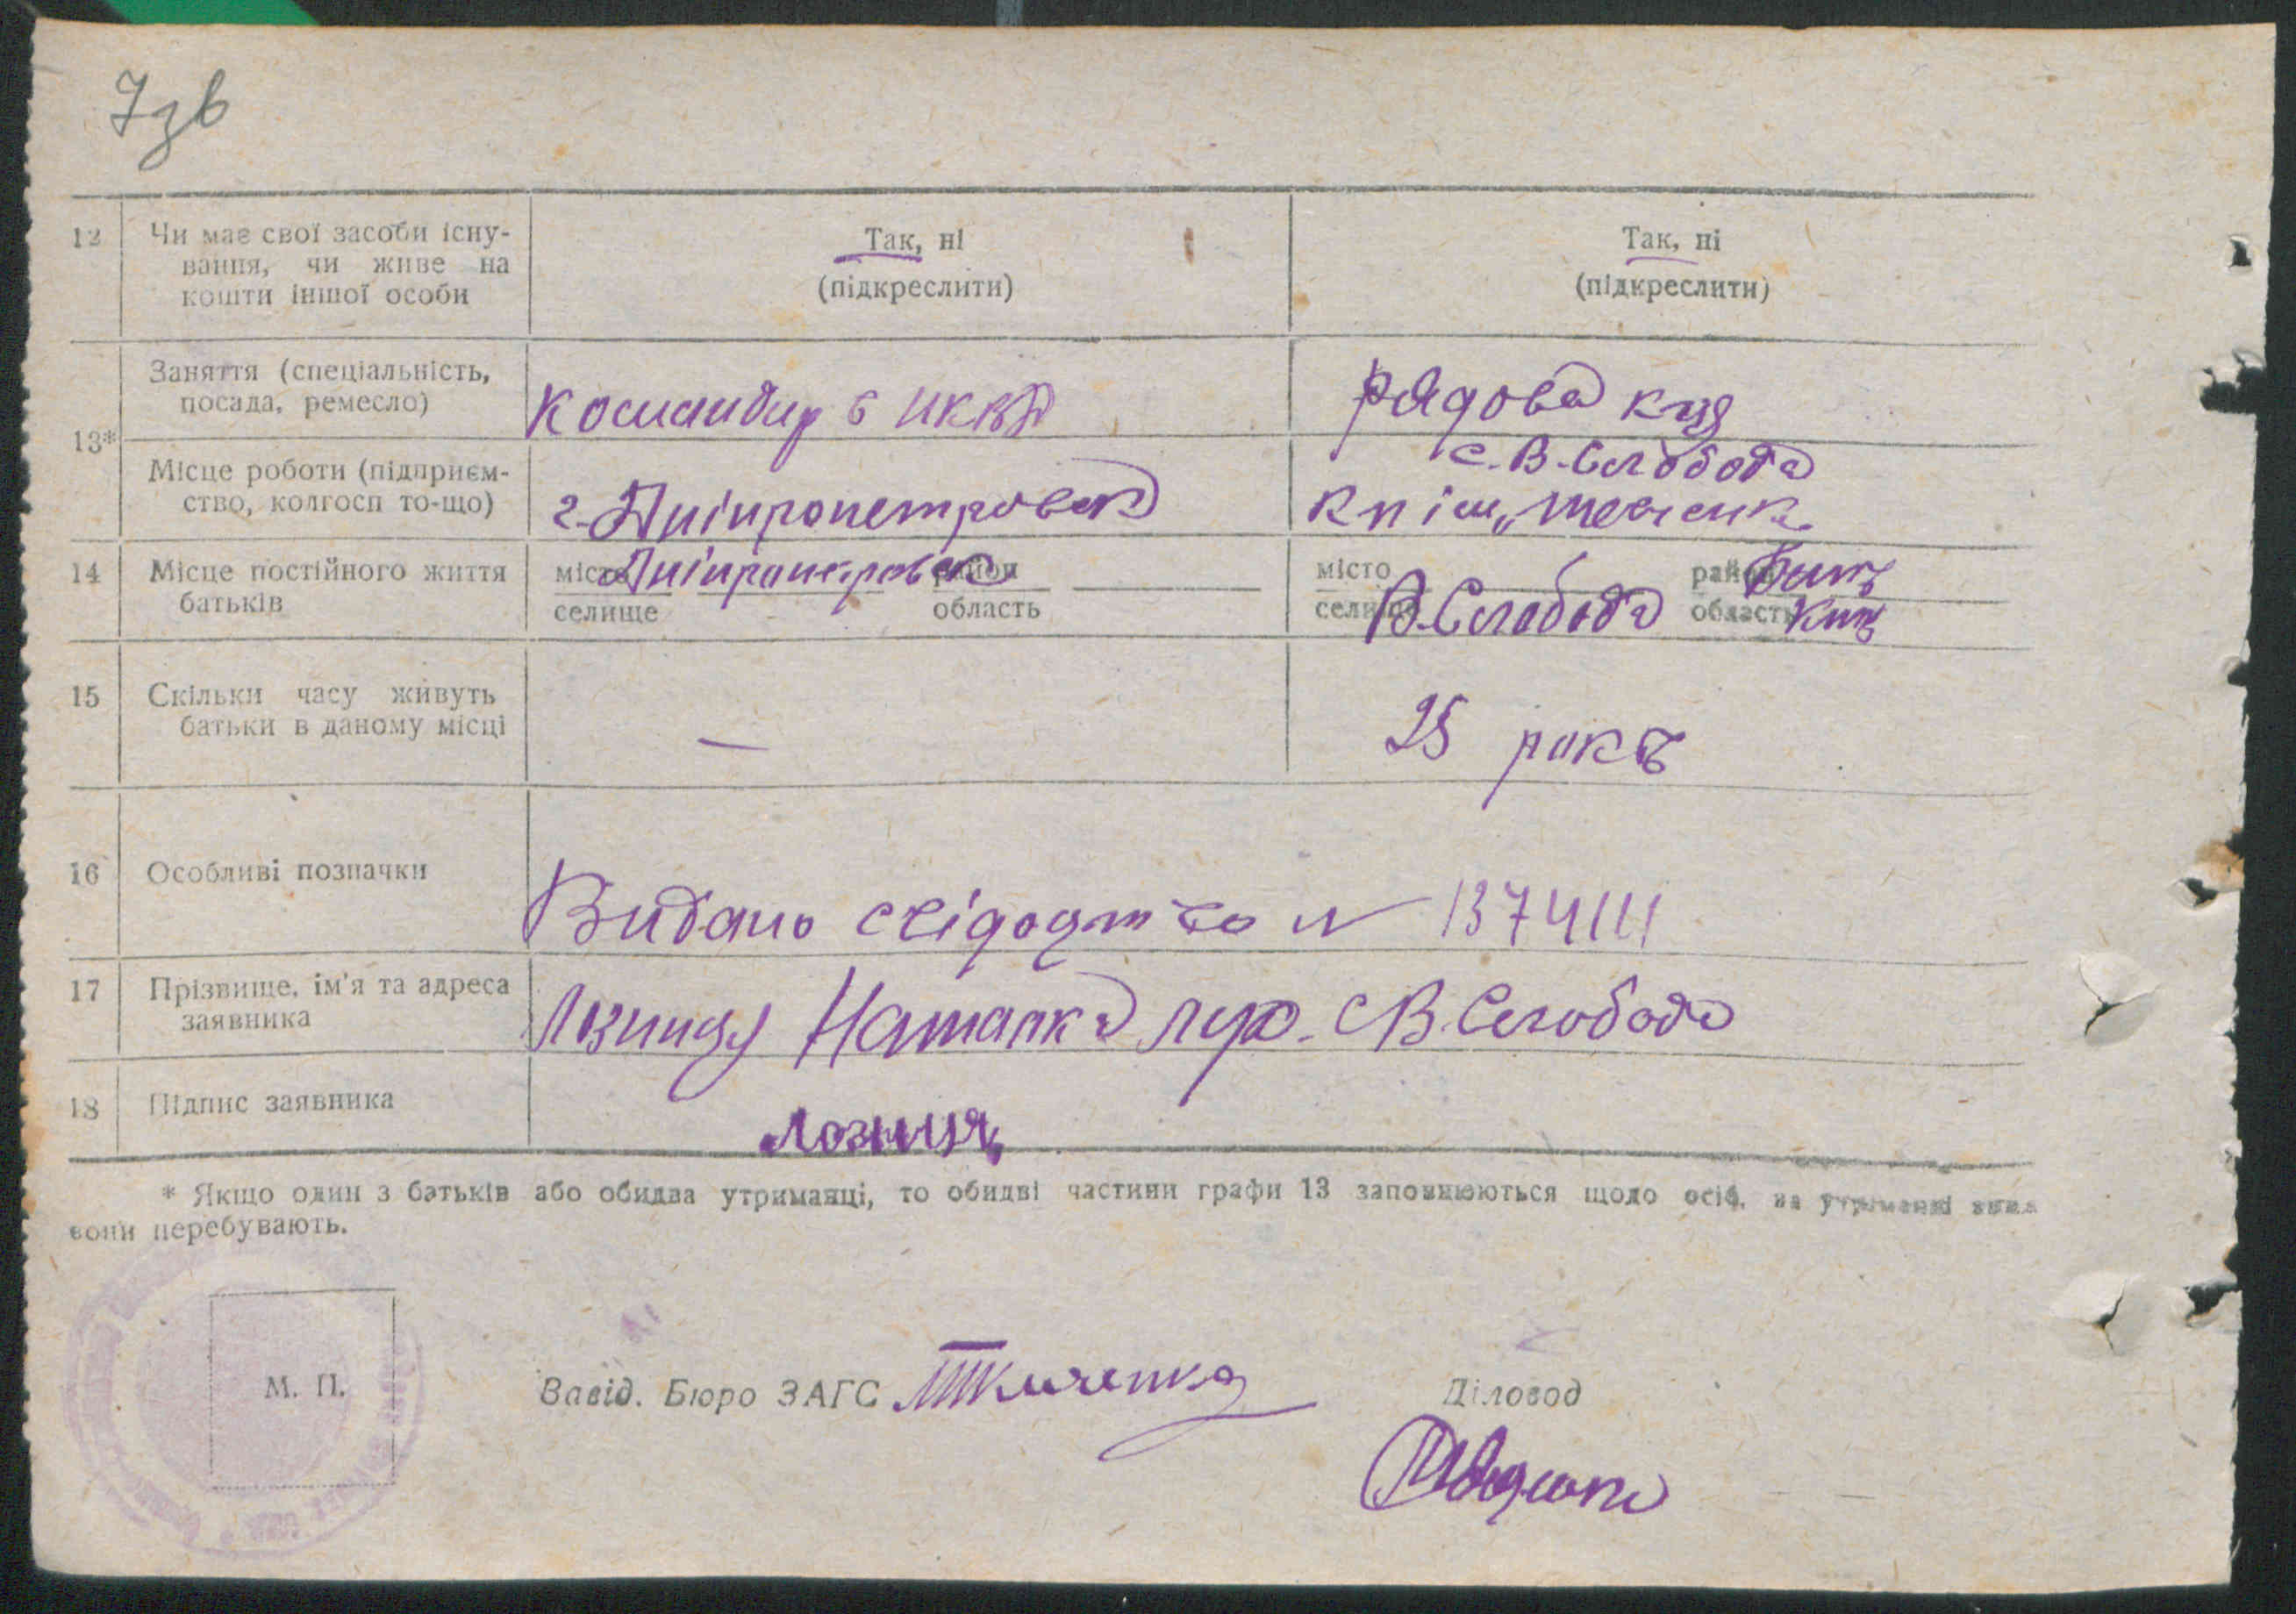 7зв
12 Чи має свої засоби існу-
вання, чи живе на
кошти іншої особи
Так, ні
(підкреслити)
Так, ні
(підкреслити)
13*
Заняття (спеціальність,
посада, ремесло)
Командир в НКВД
Рядова
Місце роботи (підприєм-
ство, колгосп то-що)
г. Дніпропетровск
с. В-Слобода
14 Місце постійного життя
батьків
місто Дніпропетровск район
селище область
місто район
селище В-Слобода область
15 Скільки часу живуть
батьки в даному місці
—
25 років
16 Особливі позначки
Видано свідоцтво № 1374111
17 Прізвище, ім'я та адреса
заявника
Наталка с В. Слобода
18 Підпис заявника
Лозиця
* Якщо один з батьків або обидва утриманці, то обидві частини графи 13 заповнюються щодо осіб, на утриманні яких
вони перебувають.
М. П.
Завід. Бюро ЗАГС Ткаченко
Діловод